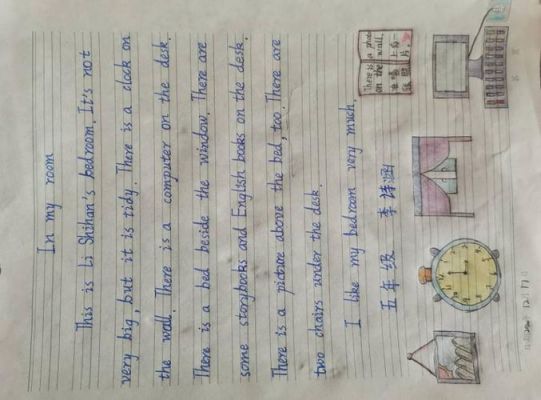 In my room
This is Li Shihan's bedroom. It's not
very big, but it is tidy. There is a clock on
the wall. There is a computer on the desk.
There is a bed beside the window. There are
some storybooks and English books on the desk.
There is a picture above the bed, too. There are
two chairs under the desk.
I like my bedroom very much.
五年级 李诗涵
There is a photo
on the wall.